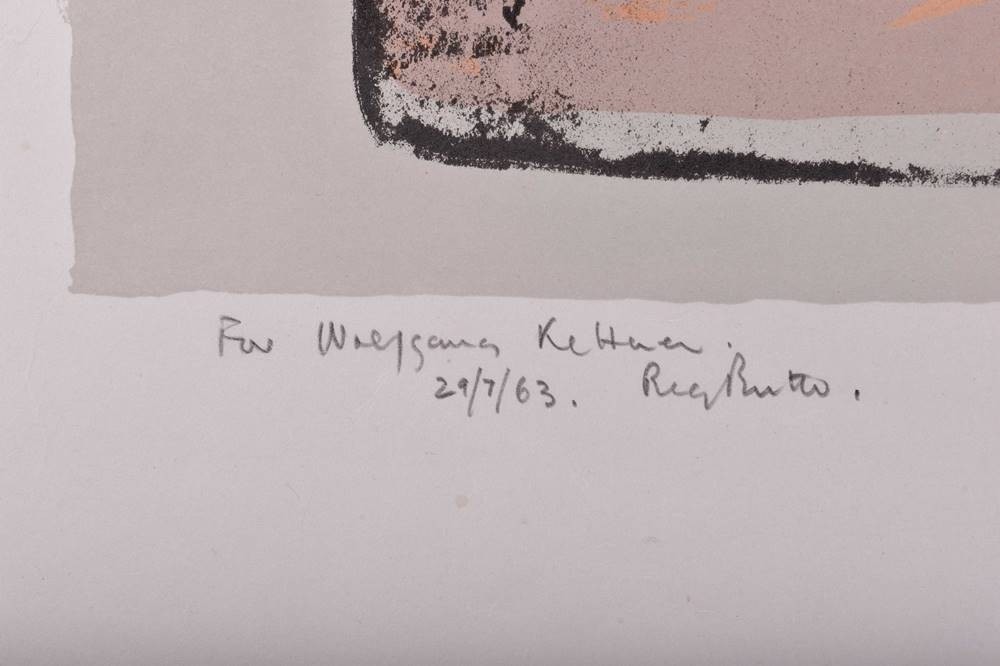 For Wolfgang Ketterer.
29/7/63. Reg Butler.